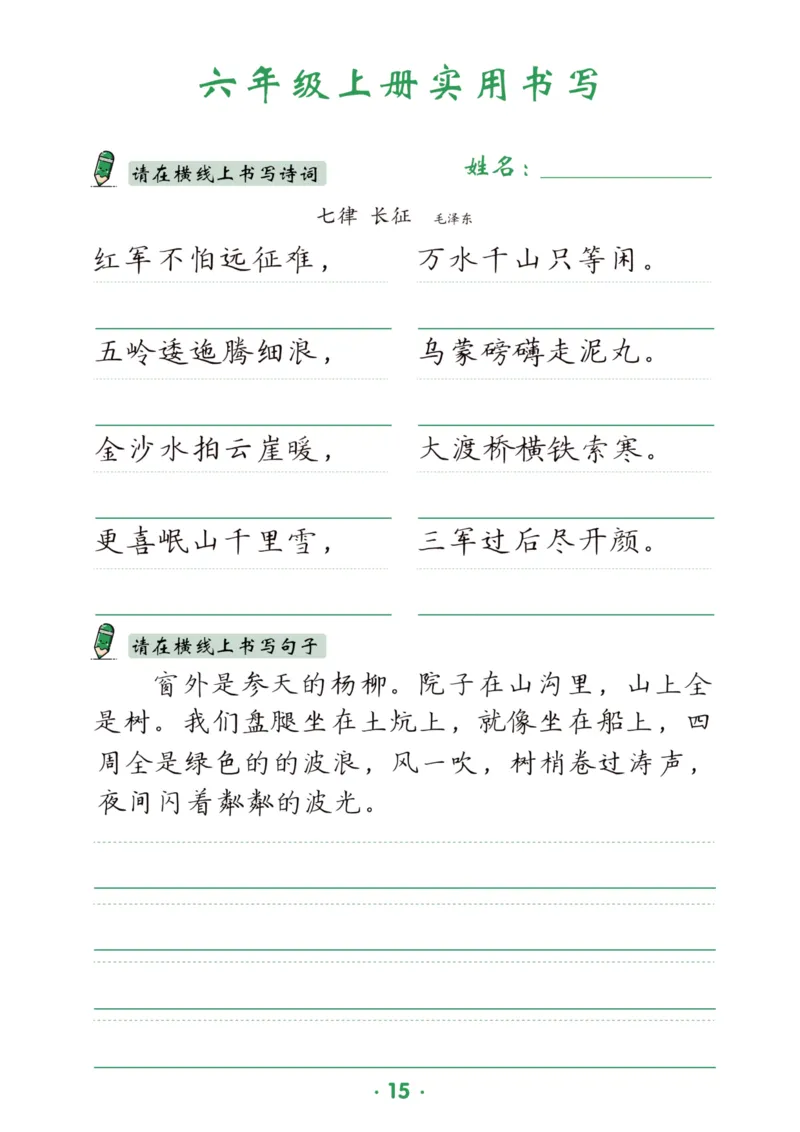 六年级上册实用书写
请在横线上书写诗词
姓名：
七律 长征 毛泽东
红军不怕远征难， 万水千山只等闲。
五岭逶迤腾细浪， 乌蒙磅礴走泥丸。
金沙水拍云崖暖， 大渡桥横铁索寒。
更喜岷山千里雪， 三军过后尽开颜。
请在横线上书写句子
窗外是参天的杨柳。院子在山沟里，山上全
是树。我们盘腿坐在土炕上，就像坐在船上，四
周全是绿色的的波浪，风一吹，树梢卷过涛声，
夜间闪着粼粼的波光。
· 15 ·